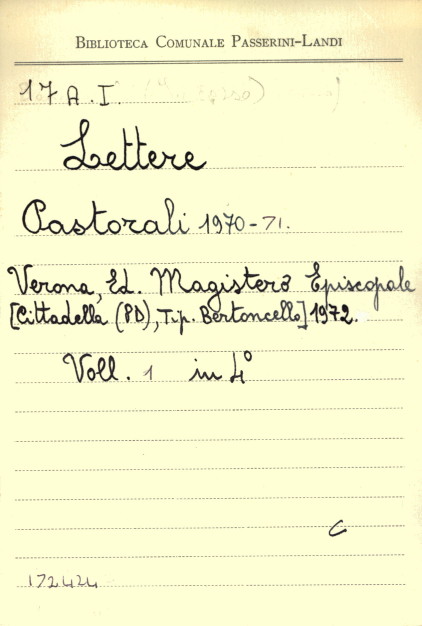 BIBLIOTECA COMUNALE PASSERINI-LANDI
17 A. I.
Lettere
Pastorali 1970-71.
Verona, Ed. Magistero Episcopale
[Cittadella (PD), Tip. Bertoncello] 1972.
Voll. 1 in 4°
C
172424